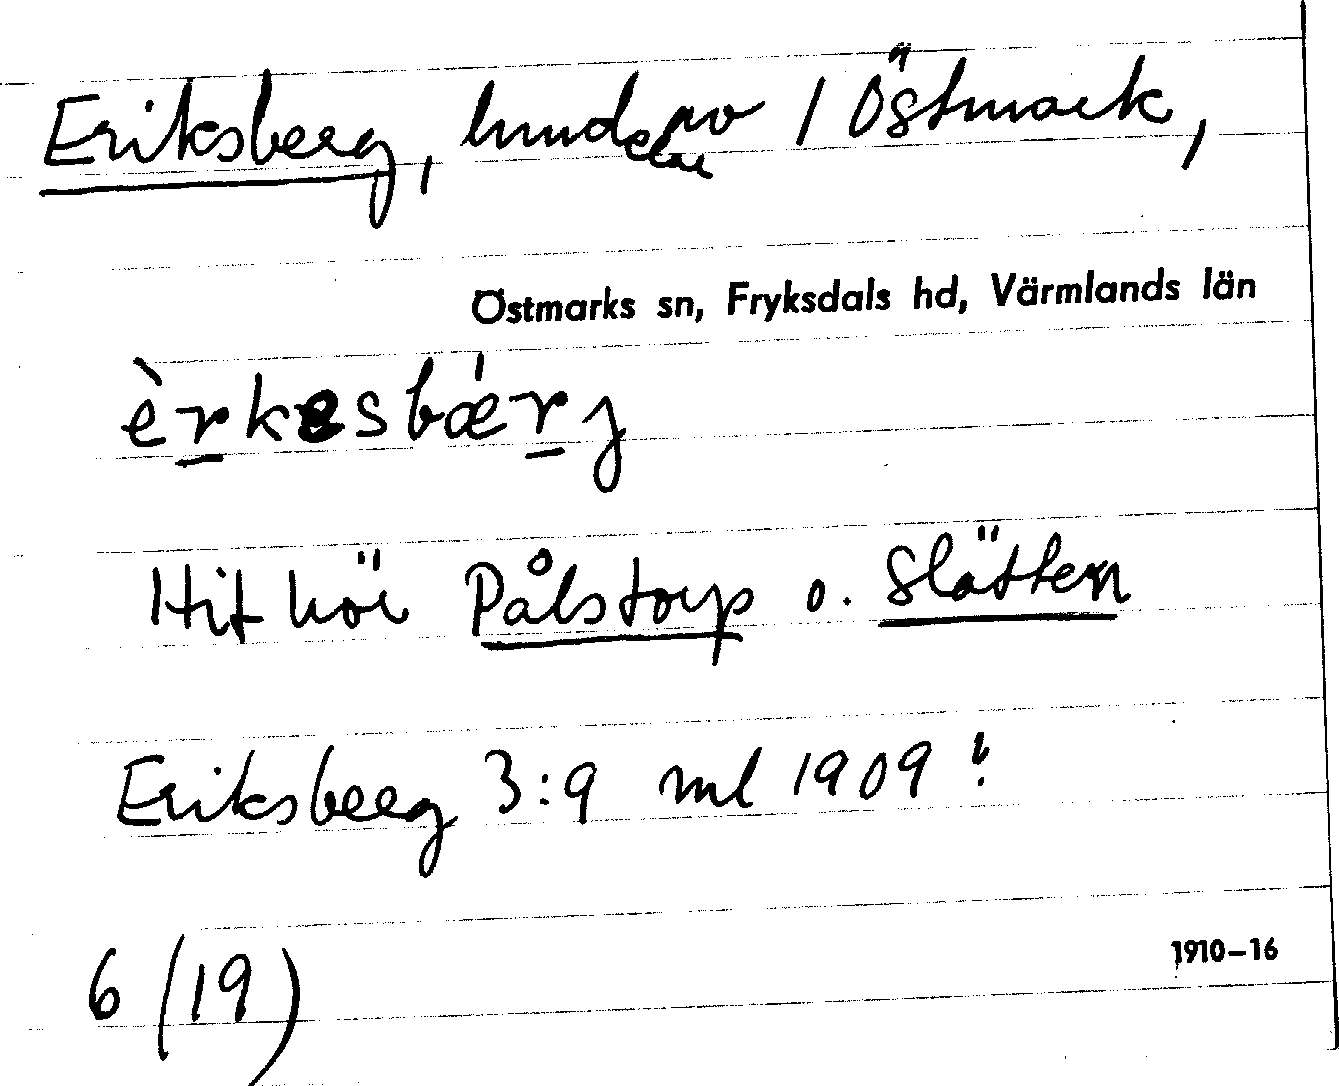 Eriksberg, hmd av 1 Östmark,
Östmarks sn, Fryksdals hd, Värmlands län
èrkesbærj
Hit hör Pålstorp o. Slätten
Eriksberg 3:9 ml 1909!
6 (19)
1910–16